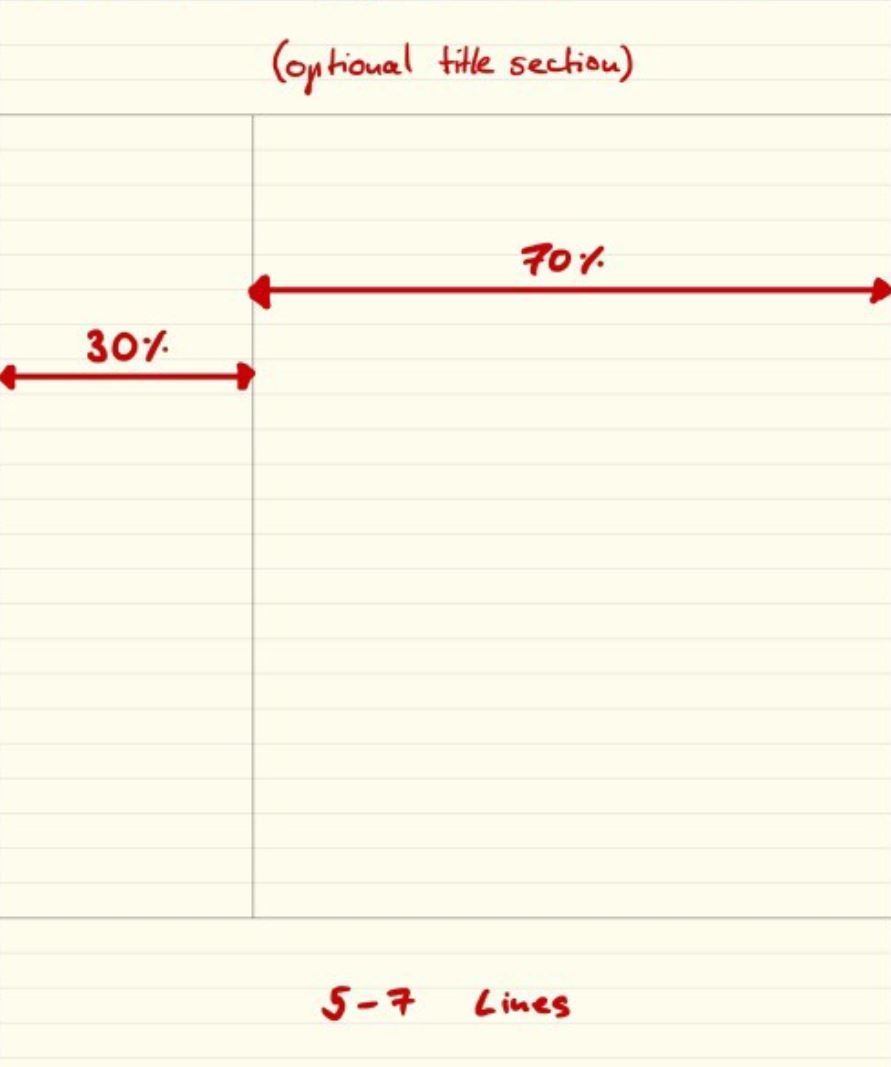 (optional title section)
70%
30%
5-7 Lines